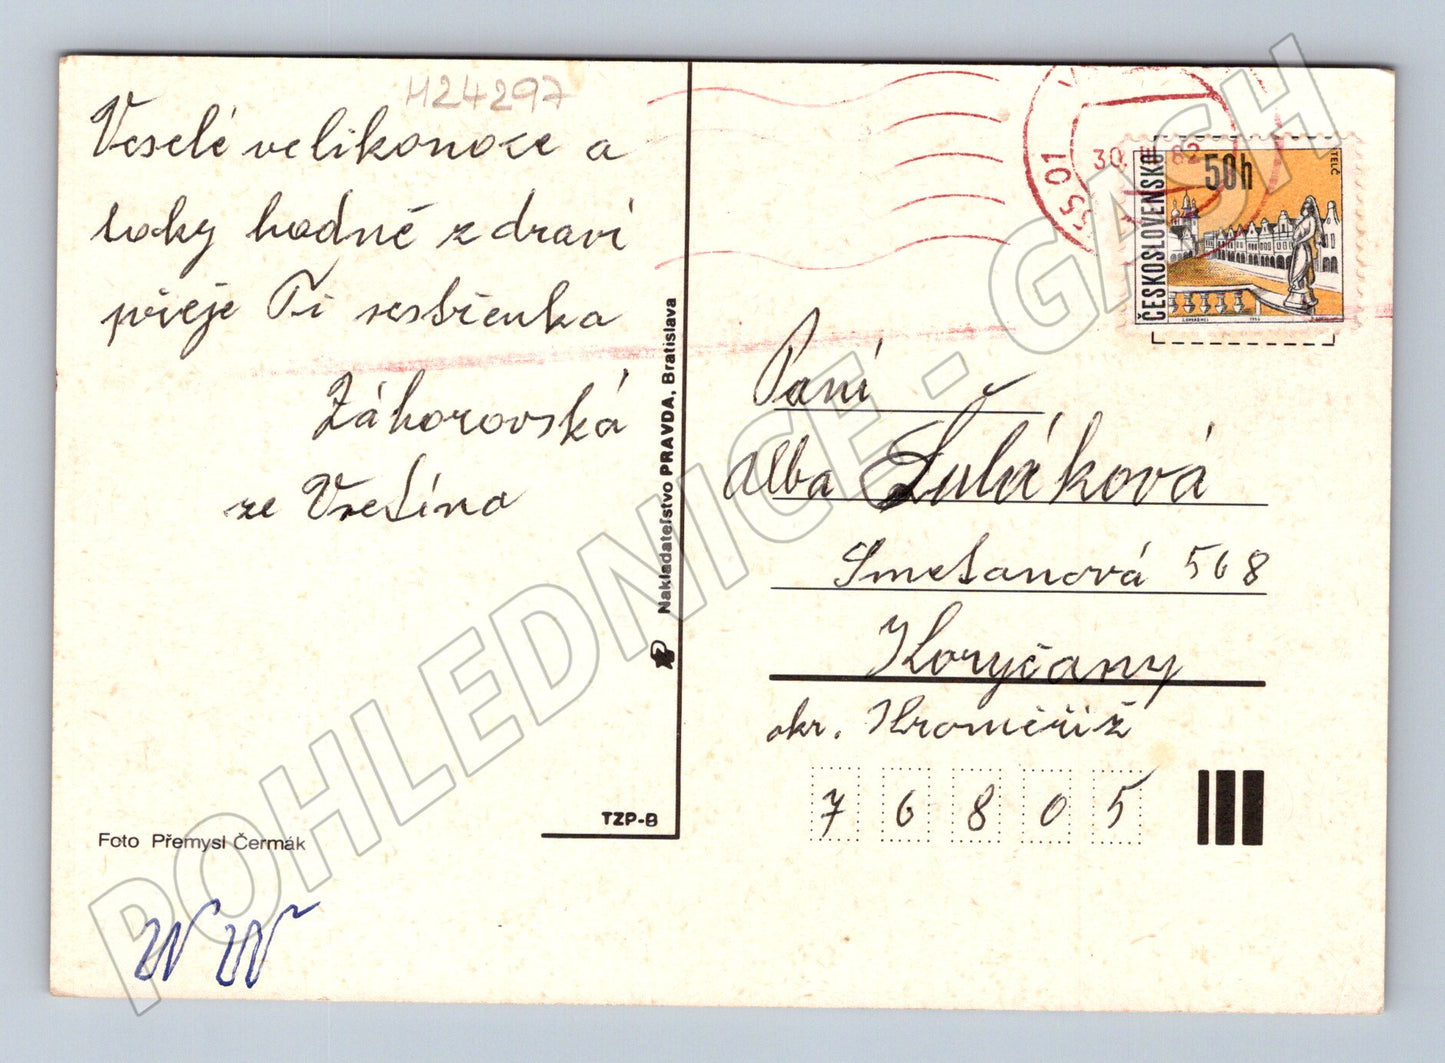 H24297
Veselé velikonoce a
toky hodně zdraví
přeje Ti sestřenka
Záhorovská
ze Vsetína
Foto Přemysl Čermák
TZP-B
Nakladateľstvo PRAVDA, Bratislava
55 01
30. III 82
ČESKOSLOVENSKO
50h
TELČ
Paní
Alba Luláková
Smetanová 568
Koryčany
okr. Kroměříž
7 6 8 0 5
POHLEDNICE - GASH